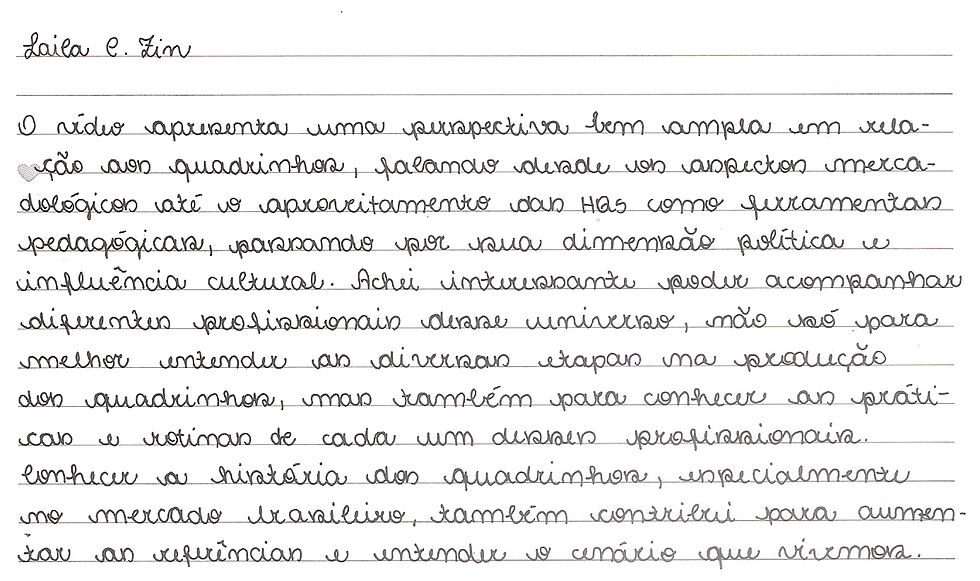 Laila C. Zin
O vídeo apresenta uma perspectiva bem ampla em rela-
ção aos quadrinhos, falando desde os aspectos merca-
dológicos até o aproveitamento das HQs como ferramentas
pedagógicas, passando por sua dimensão política e
influência cultural. Achei interessante poder acompanhar
diferentes profissionais desse universo, não só para
melhor entender as diversas etapas na produção
dos quadrinhos, mas também para conhecer as práti-
cas e rotinas de cada um desses profissionais.
Conhecer a história dos quadrinhos, especialmente
no mercado brasileiro, também contribui para aumen-
tar as referências e entender o cenário que vivemos.